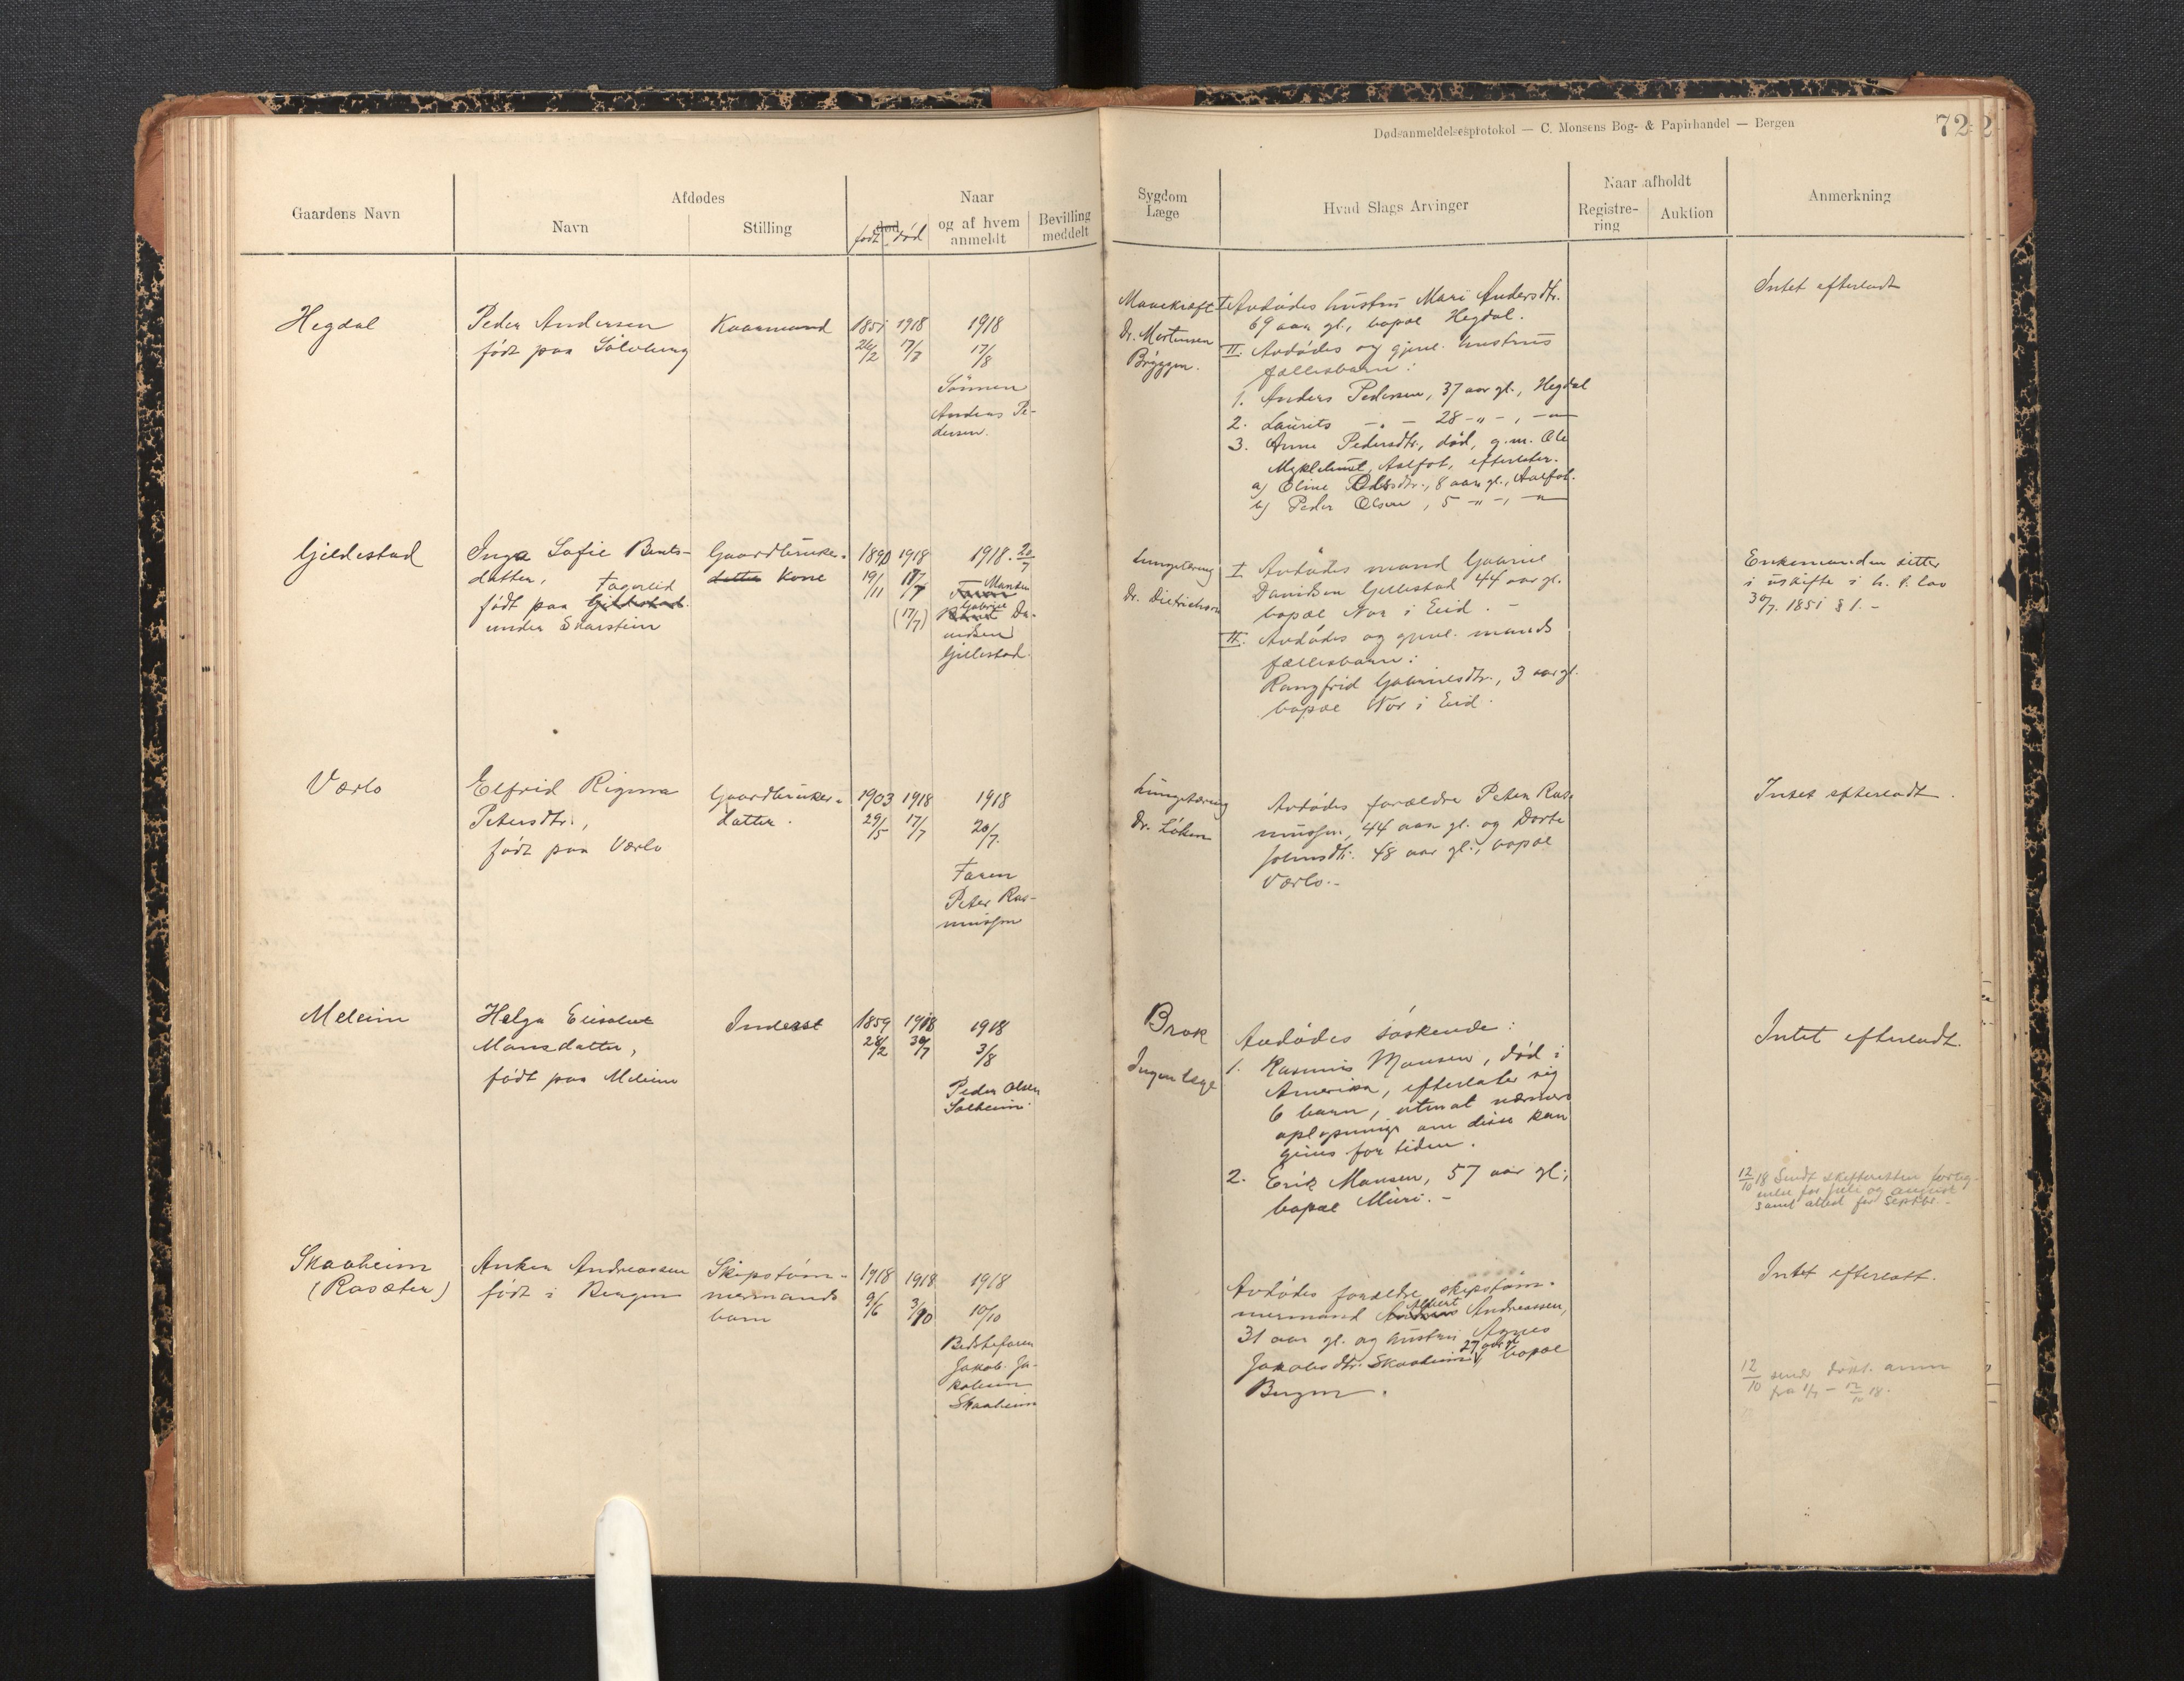 Dødsanmeldelsesprotokol — C. Monsens Bog- & Papirhandel — Bergen
72
Gaardens Navn
Afdødes
Navn
Stilling
født
død
Naar
og af hvem
anmeldt
Bevilling
meddelt
Sygdom
Læge
Hvad Slags Arvinger
Naar afholdt
Registre-
ring
Auktion
Anmerkning
Hegdal
Peder Andersen
født paa Sølvberg
Kaarmand
1851 1918
24/2 17/7
1918
17/8
Sönnen
Anders Pe-
dersen.
Mavekræft
Dr. Mortensen
Bryggen.
I Avdødes hustru Mari Andersdtr.
69 aar gl., bopæl Hegdal.
II. Avdødes og gjenl. hustrus
fællesbarn:
1. Anders Pedersen, 37 aar gl., Hegdal
2. Laurits — „ — 28 - „ - , —„—
3. Anne Pedersdtr., død, g.m. Ole
Myklebust, Aalfot, efterlater.
a) Oline Olsdtr., 8 aar gl., Aalfot.
b) Peder Olsen, 5 - „ - , —„—
Intet efterladt
Gjeldestad
Inga Sofie Bents-
datter,
Fagerlid
født paa Gjeldestad.
under Skarstein
Gaardbruker-
datter Kone
1890 1918
19/11 17/7
(17/7)
1918. 20/7
Manden
Faren
Gabriel
Da-
nielsen
Gjellestad.
Lungetæring
Dr. Dietrichson
I Avdødes mand Gabriel
Danielsen Gjellestad 44 aar gl.
bopæl Nor i Eid. -
II. Avdødes og gjenl. mands
fællesbarn:
Rangfrid Gabrielsdtr., 3 aar gl.
bopæl Nor i Eid.
Enkemanden sitter
i uskifte i h. t. lov
30/7. 1851 § 1. -
Værlo
Elfrid Rigma
Petersdtr.,
født paa Værlo
Gaardbruker-
datter.
1903 1918
29/5 17/7
1918
20/7.
Faren
Peter Ras-
mussen
Lungetæring
Dr. Löken
Avdødes forældre Peter Ras-
mussen, 44 aar gl. og Dorte
Johnsdtr. 48 aar gl., bopæl
Værlo.-
Intet efterladt.
Meleim
Helga Elisabet
Monsdatter,
født paa Meleim
Inderst
1859 1918
28/2 30/7
1918
3/8
Peder Olsen
Solheim
Brok
Ingen læge
Avdødes søskende:
1. Rasmus Monsen, død i
Amerika, efterlater sig
6 barn, uten at nærmere
oplysning om disse kan
gives for tiden.
2. Erik Monsen, 57 aar gl.,
bopæl Muri. -
Intet efterladt.
12/10 18 Sendt skifteretten forteg-
nelse for juli og august
samt attest for Septbr. -
Skaaheim
(Rasæter)
Anker Andreassen
født i Bergen
Skipstøm-
mermands
barn
1918 1918
9/6 3/10
1918
10/10
Bedstefaren
Jakob Ja-
kobsen
Skaaheim
Avdødes forældre skipstøm-
Albert
mermand Andreas Andreassen,
31 aar gl. og hustru Agnes
27 aar gl.
Jakobsdtr. Skaaheim, bopæl
Bergen.
Intet efterlatt.
12/10 sendt
fra 1/7 - 12/10 18.